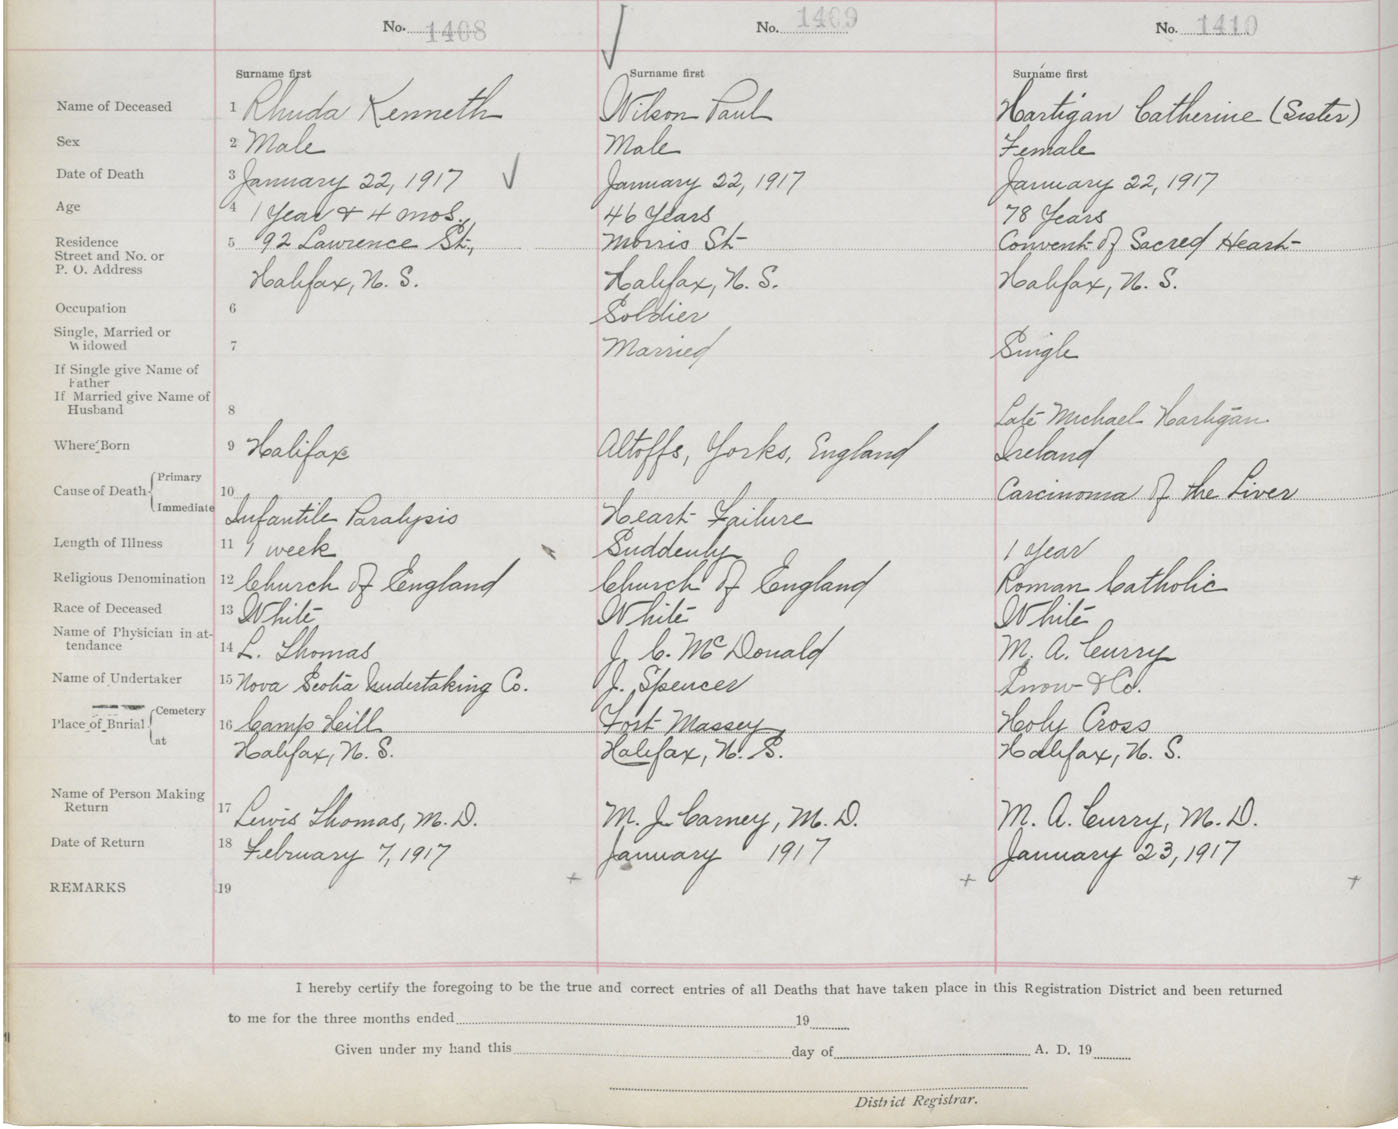 No. 1408 No. 1409 No. 1410
Surname first Surname first Surname first
Name of Deceased 1 Rhuda Kenneth Wilson Paul Hartigan Catherine (Sister)
Sex 2 Male Male Female
Date of Death 3 January 22, 1917 January 22, 1917 January 22, 1917
Age 4 1 Year & 4 mos. 46 Years 78 Years
Residence 5 92 Lawrence St., Morris St Convent of Sacred Heart
Street and No. or
P. O. Address Halifax, N. S. Halifax, N. S. Halifax, N. S.
Occupation 6 Soldier
Single, Married or
Widowed 7 Married Single
If Single give Name of
Father
If Married give Name of
Husband 8 Late Michael Hartigan
Where Born 9 Halifax Altoffs, Yorks, England Ireland
Primary
Cause of Death 10 Carcinoma of the Liver
Immediate Infantile Paralysis Heart Failure
Length of Illness 11 1 week Suddenly 1 Year
Religious Denomination 12 Church of England Church of England Roman Catholic
Race of Deceased 13 White White White
Name of Physician in at-
tendance 14 L. Thomas J. C. McDonald M. A. Curry
Name of Undertaker 15 Nova Scotia Undertaking Co. J. Spencer Snow & Co.
Cemetery
Place of Burial 16 Camp Hill Fort Massey, Holy Cross
at Halifax, N. S. Halifax, N. S. Halifax, N. S.
Name of Person Making
Return 17 Lewis Thomas, M. D. M. J. Carney, M. D. M. A. Curry, M. D.
Date of Return 18 February 7, 1917 January 1917 January 23, 1917
REMARKS 19
I hereby certify the foregoing to be the true and correct entries of all Deaths that have taken place in this Registration District and been returned
to me for the three months ended 19
Given under my hand this day of A. D. 19
District Registrar.